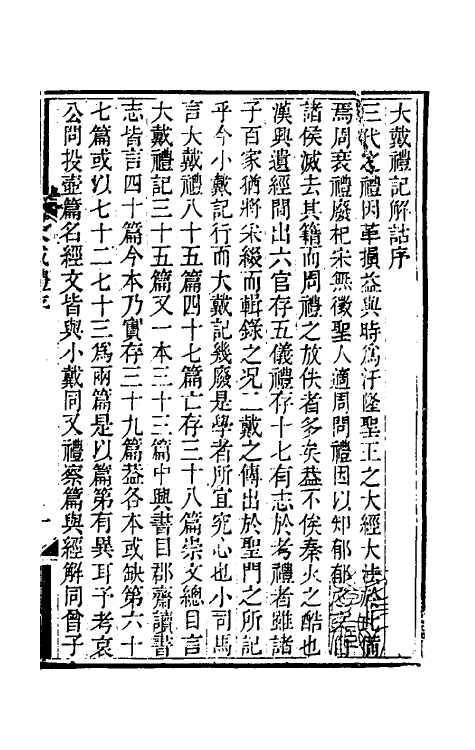 大戴禮記解詁序
三代之禮因革損益與時爲汙隆聖王之大經大法於此備
焉周衰禮廢杞宋無徵聖人適周問禮因以知郁郁之文
諸侯滅去其籍而周禮之放佚者多矣葢不俟秦火之酷也
漢興遺經間出六官存五儀禮存十七有志於考禮者雖諸
子百家猶將采綴而輯錄之况二戴之傳出於聖門之所記
乎今小戴記行而大戴記幾廢是學者所宜究心也小司馬
言大戴禮八十五篇四十七篇亡存三十八篇崇文總目言
大戴禮記三十五篇又一本三十三篇中興書目郡齋讀書
志皆言四十篇今本乃實存三十九篇葢各本或缺第六十
七篇或以七十二七十三爲兩篇是以篇第有異耳予考哀
公問投壺篇名經文皆與小戴同又禮察篇與經解同曾子
大戴禮序
一